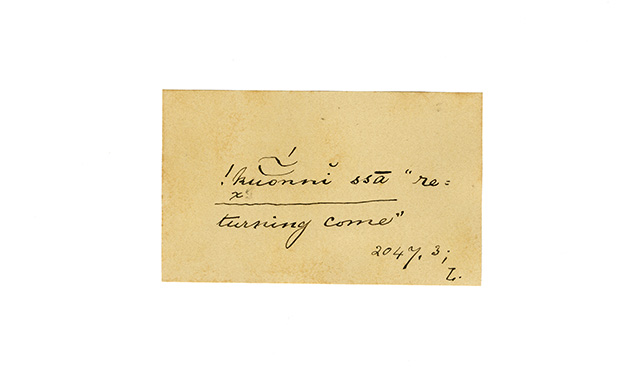 !kuõ̃nnĭ ssā "re=
turning come"
2047. 3;
L.